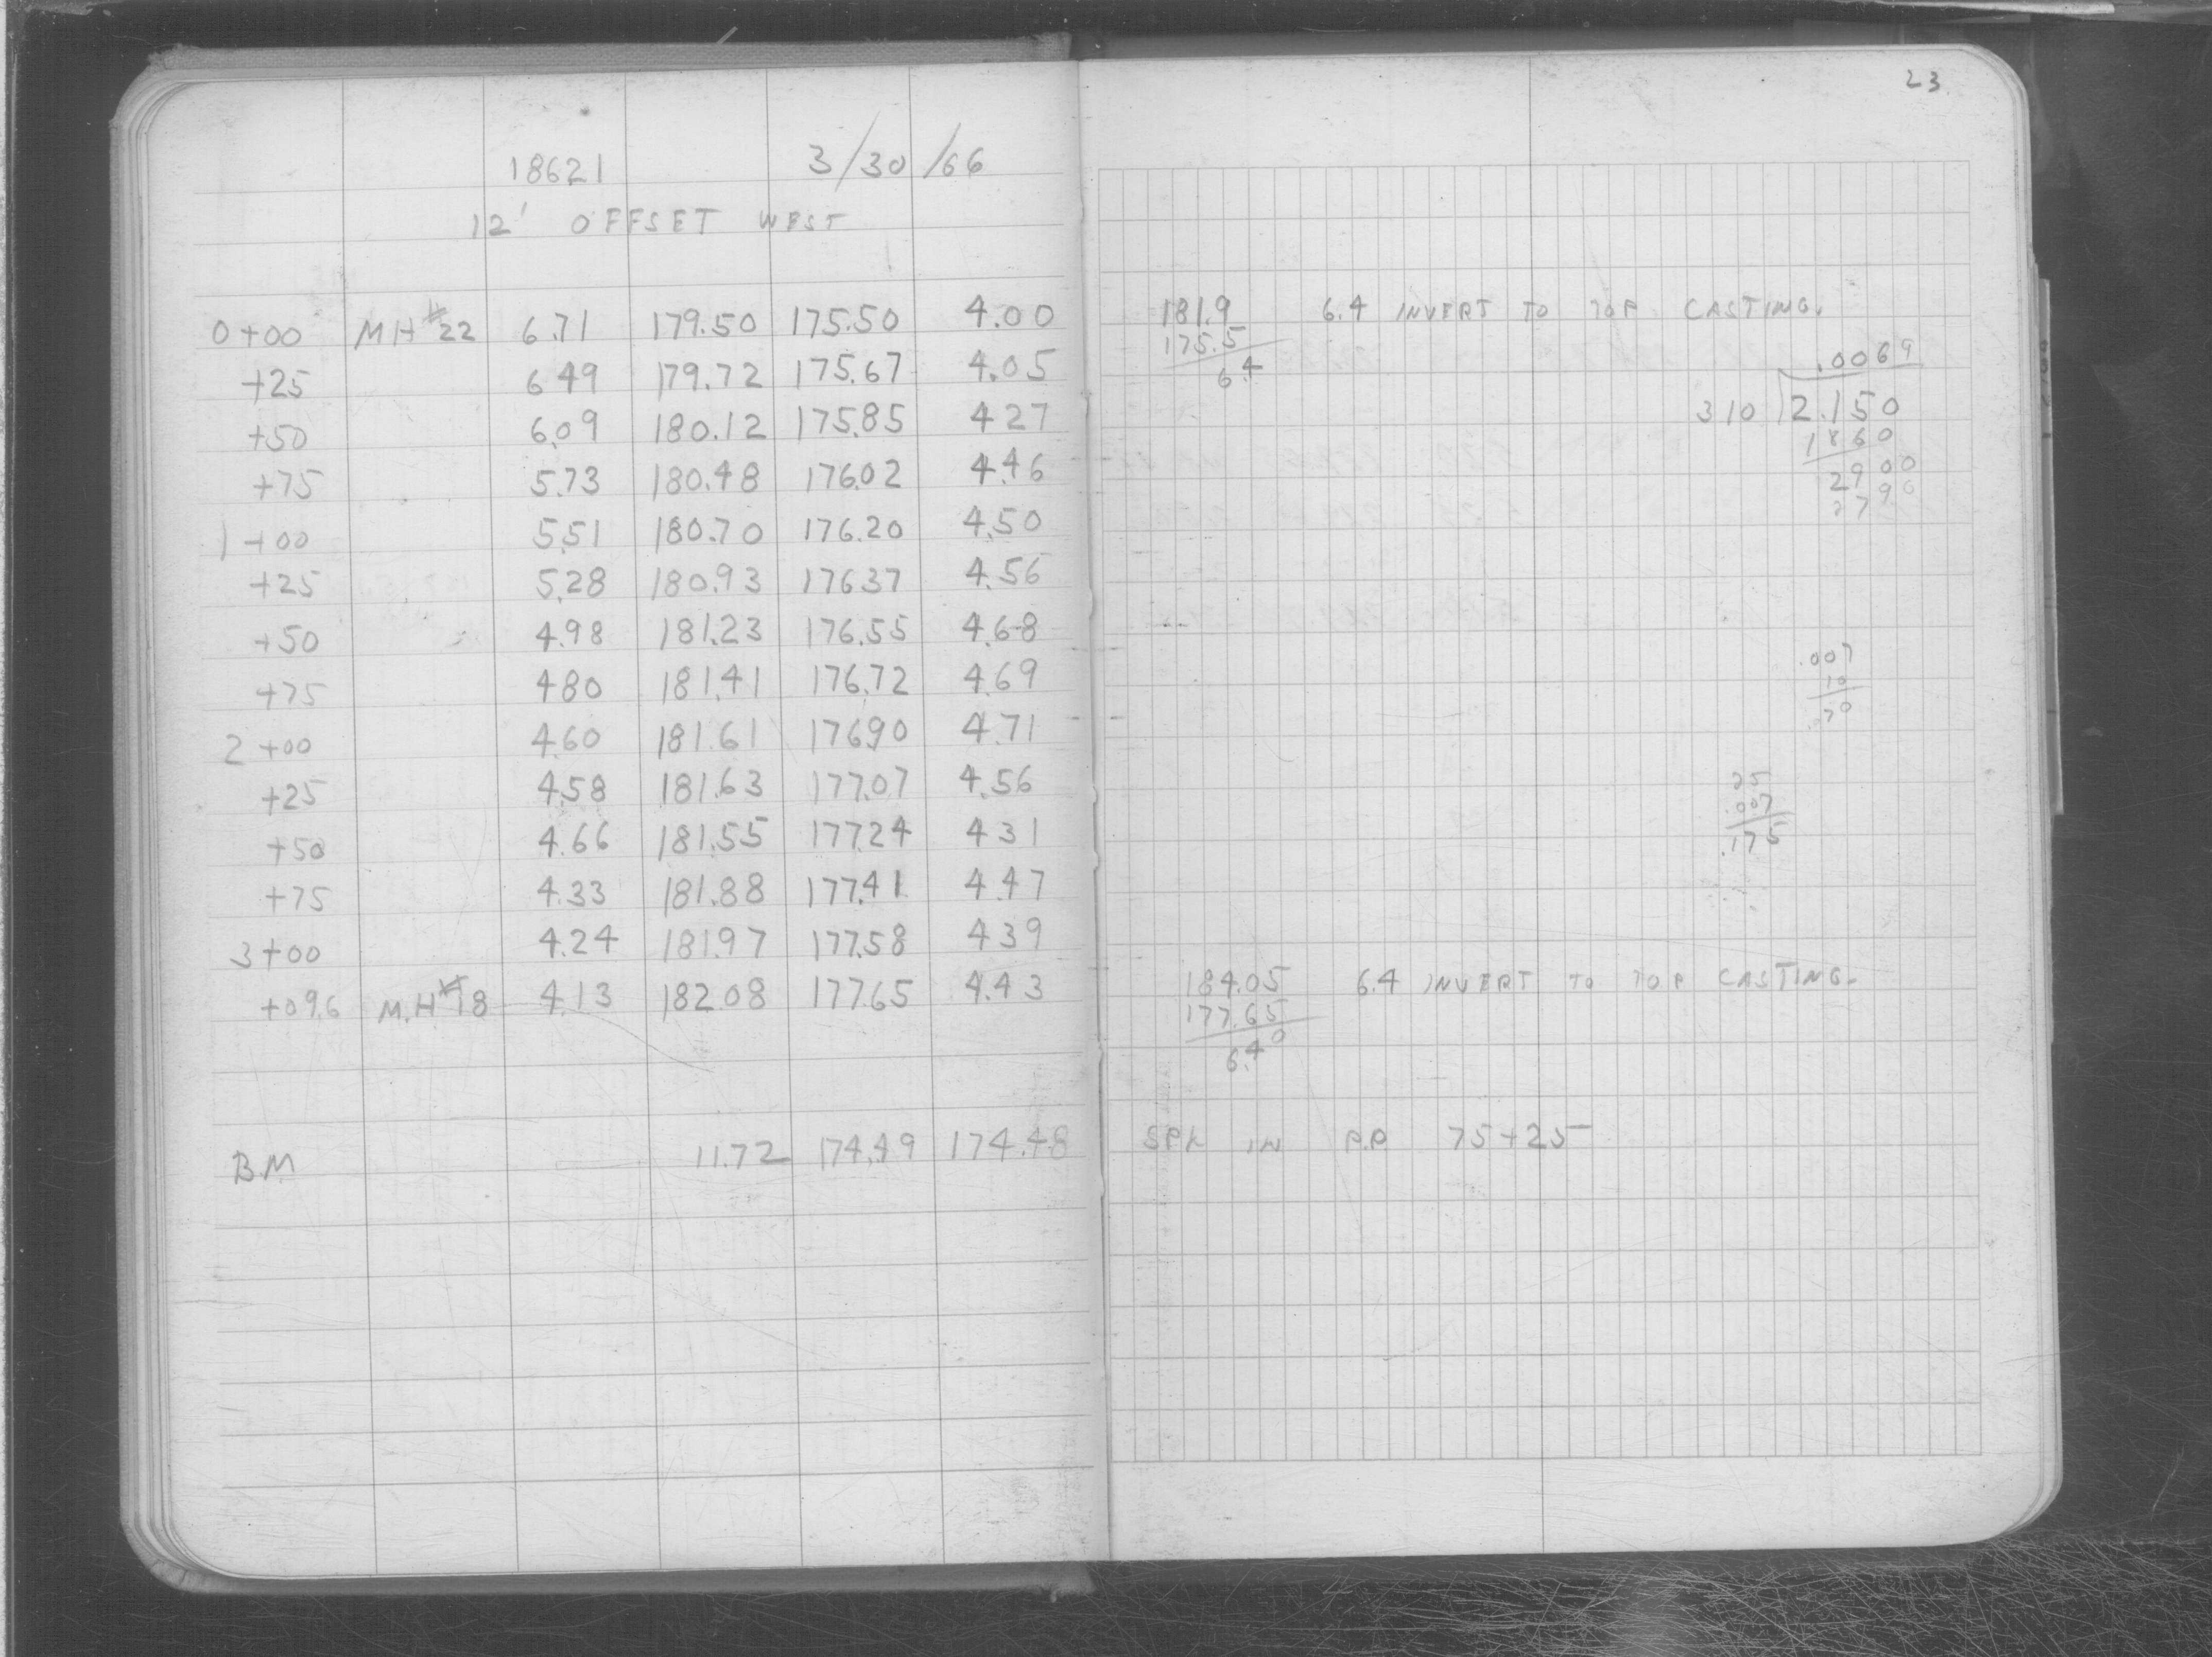 23
18621 3/30/66
12' OFFSET WEST
0+00 MH #22 6.71 179.50 175.50 4.00
+25 6 49 179.72 175.67 4.05
+50 6.09 180.12 175.85 4 27
+75 5.73 180.48 176.02 4.46
1+00 5.51 180.70 176.20 4.50
+25 5.28 180.93 17637 4.56
+50 4.98 181.23 176.55 4.68
+75 480 181.41 176.72 4.69
2+00 4.60 181.61 17690 4.71
+25 4.58 181.63 177.07 4.56
+50 4.66 181.55 177.24 4 31
+75 4.33 181.88 177.41 4.47
3+00 4.24 181.97 177.58 4 39
+09.6 M.H #18 4.13 182.08 177.65 4.43
B.M. 11.72 174.49 174.48
181.9 6.4 INVERT TO TOP CASTING.
175.5
6.4
.0069
310 2.150
1860
2900
2790
.007
10
.070
25
.007
.175
184.05 6.4 INVERT TO TOP CASTING.
177.65
6.40
SPK IN P.P 75+25